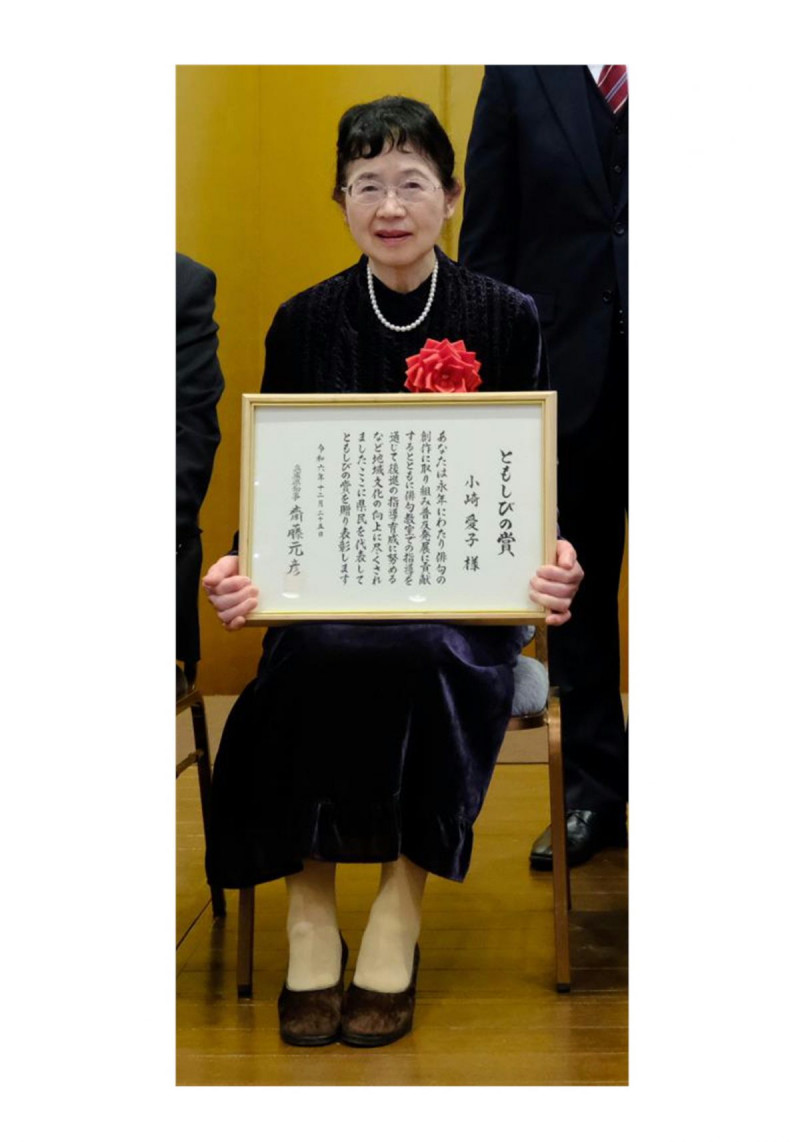 ともしびの賞
小﨑 愛子 様
あなたは永年にわたり俳句の
創作に取り組み普及発展に貢献
するとともに俳句教室での指導を
通じて後進の指導育成に努める
など地域文化の向上に尽くされ
ましたここに県民を代表して
ともしびの賞を贈り表彰します
令和六年十二月二十五日
兵庫県知事 齋藤元彦